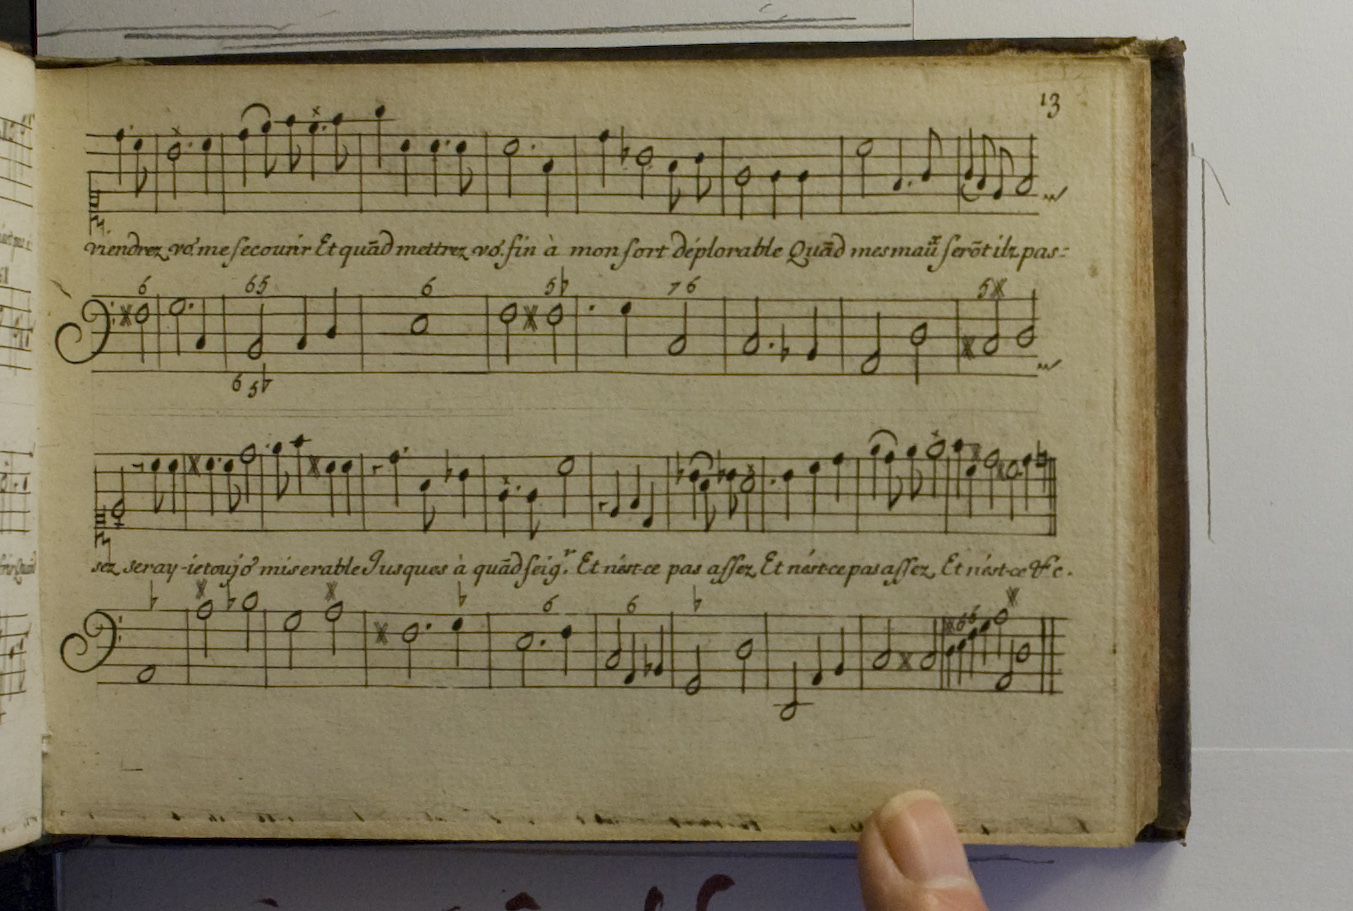 13
viendrez vo' me secourir Et quād mettrez vo' fin à mon sort déplorable Quād mes maux̃ serōt ilz pas:
6 65 6 5♭ 76 5x
6 5♭
sez seray-ie toujo' miserable Jusques à quād seig.r Et n'est-ce pas assez, Et n'est-ce pas assez, Et n'est-ce &c.
♭ x ♭ x ♭ 6 6 ♭ x 6 6 x